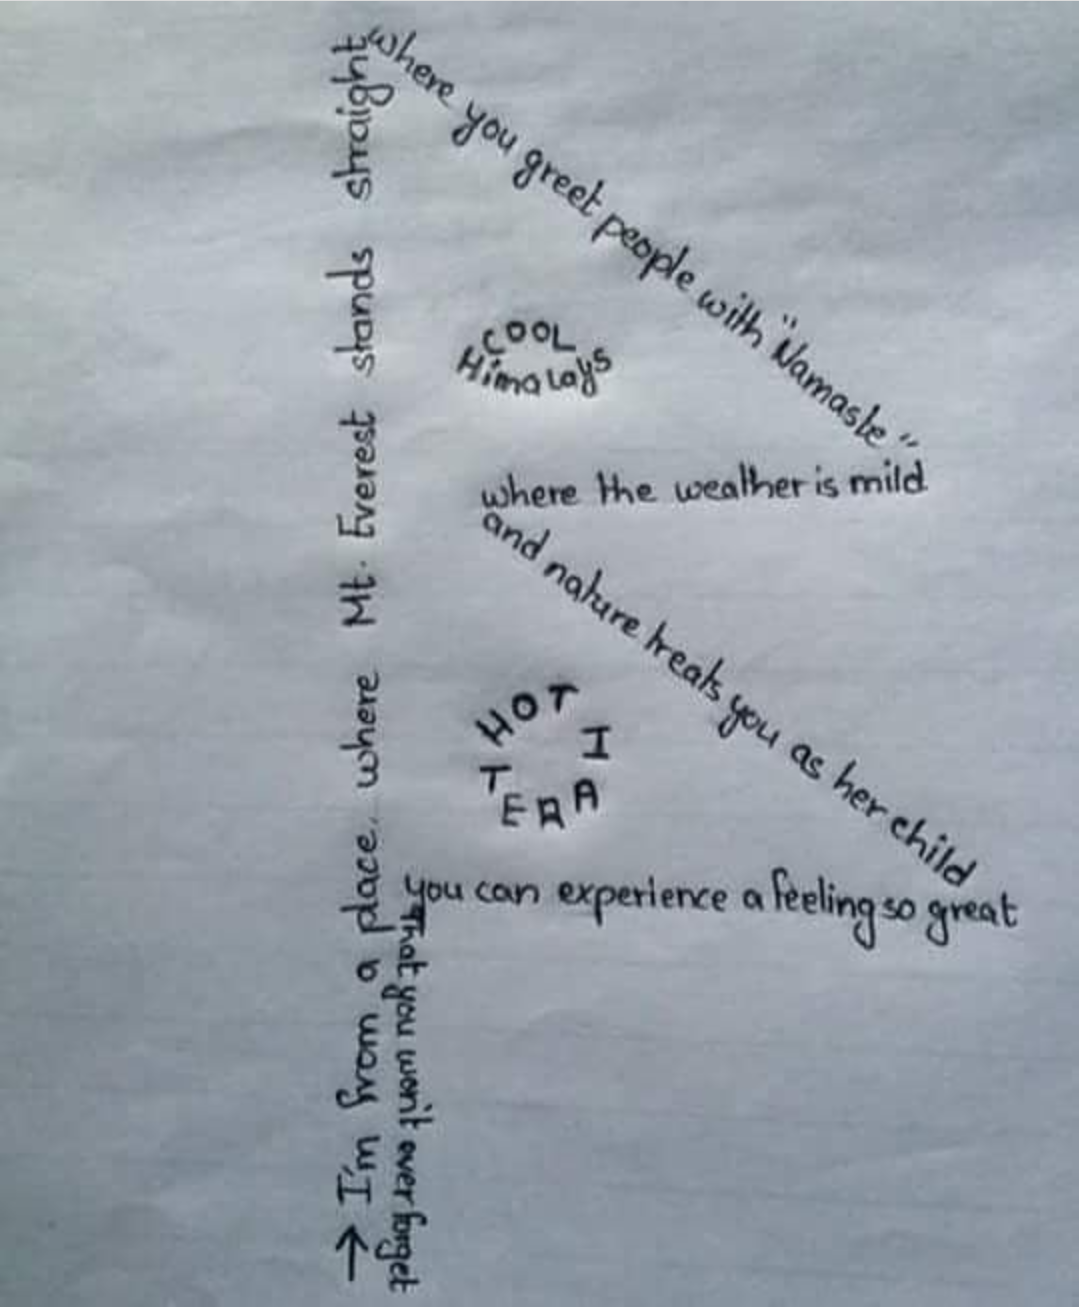 → I'm from a place, where Mt. Everest stands straight
where you greet people with "Namaste"
COOL
Himalays
where the weather is mild
and nature treats you as her child
HOT
TERAI
you can experience a feeling so great
That you won't over forget